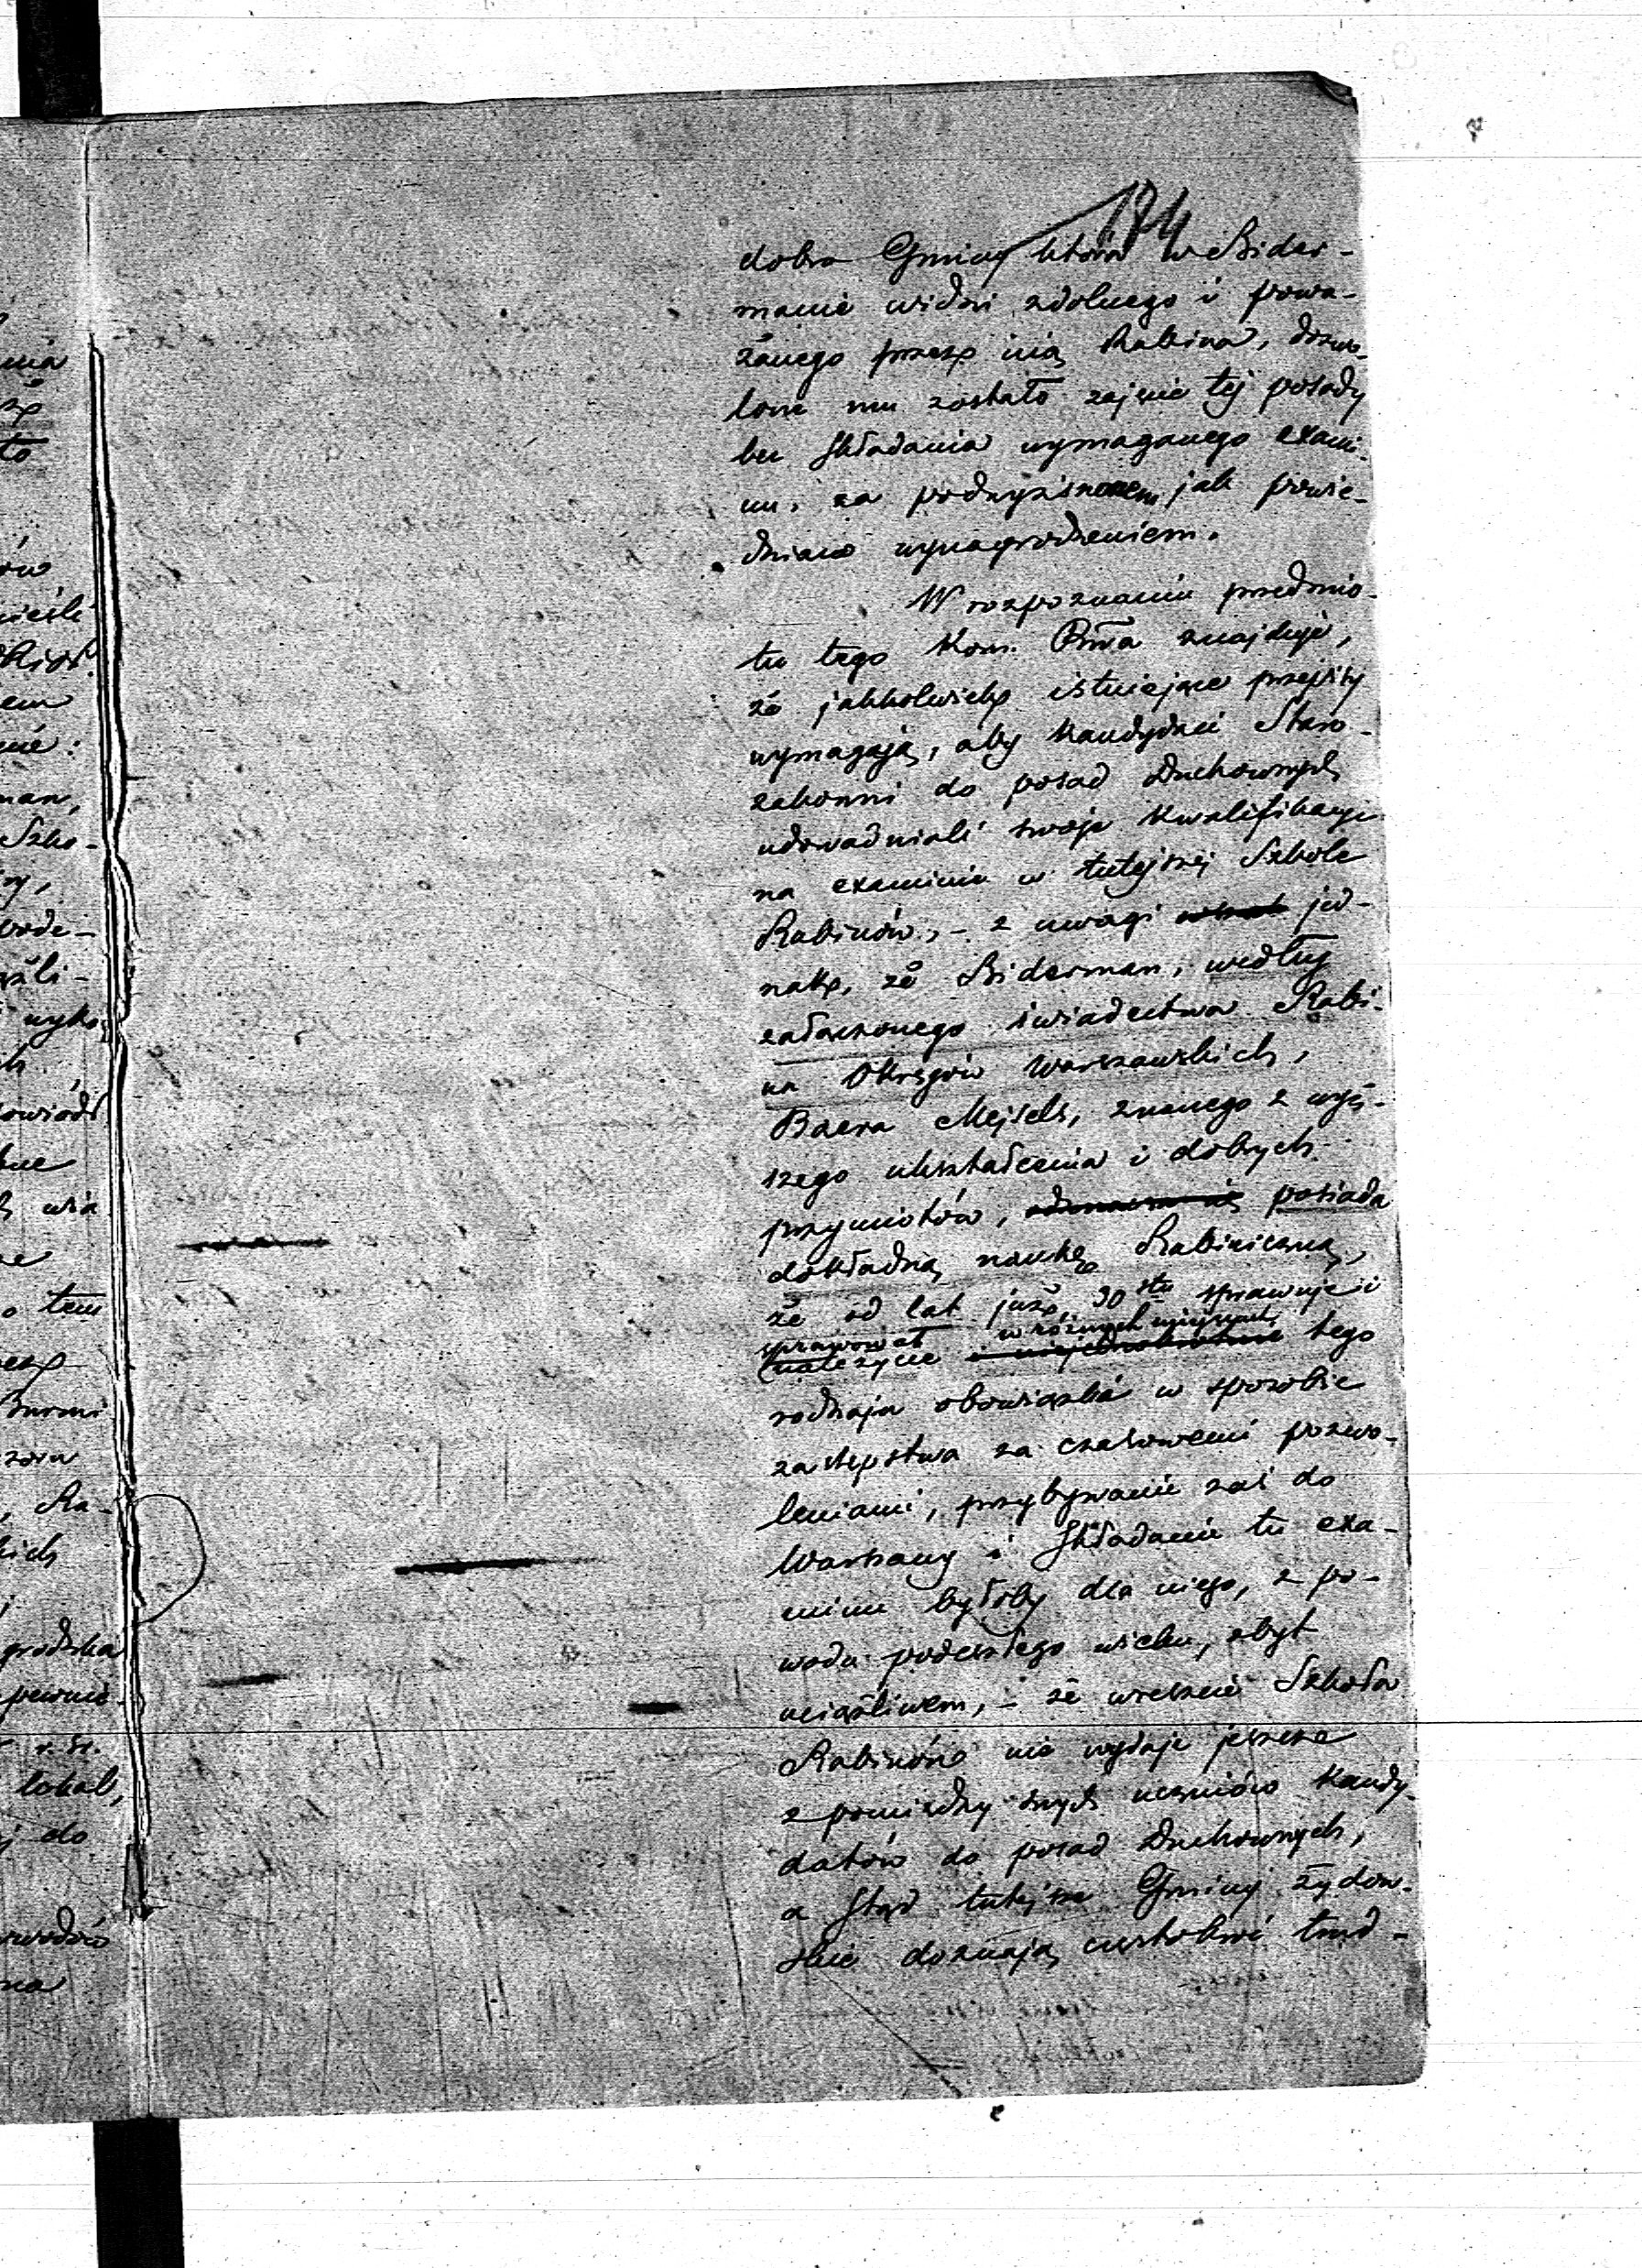 174
dobra Gminy która w Bider-
manie widzi zdolnego i powa-
żanego przez nią Rabina, dozwo-
lone mu zostało zajęcie tej posady
bez składania wymaganego exami-
nu, za podwyższonem jak powie-
dziano wynagrodzeniem.
W rozpoznaniu przedmio-
tu tego Kom. Rwa znajduje,
że jakkolwiek istniejące przepisy
wymagają, aby kandydaci Staro-
zakonni do posad Duchownych
udowadniali swoje kwalifikacje
na examinie w tutejszej Szkole
Rabinów, – z uwagi jed-
nak, że Biderman, według
załączonego świadectwa Rabi-
na Okręgów Warszawskich,
Baera Mejsels, znanego z wyż-
szego ukształcenia i dobrych
przymiotów, posiada
dokładną naukę Rabiniczną,
że od lat już 30stu sprawuje i
sprawował w różnych miejscach
należycie tego
rodzaju obowiązki w sposobie
zastępstwa za czasowemi pozwo-
leniami, przybywanie zaś do
Warszawy i składanie tu exa-
minu byłoby dla niego, z po-
wodu podeszłego wieku, zbyt
uciążliwem, – że wreszcie Szkoła
Rabinów nie wydaje jeszcze
z pomiędzy swych uczniów kandy-
datów do posad Duchownych,
a stąd tutejsze Gminy żydow-
skie doznają cząstokroć trud-
nia
to
ów
nieśli
em
nie:
man,
Szko-
wode-
żli-
wyko
owiódł
wia
o tem
Ra-
kich
grodzka
pewnie
lokal,
j do